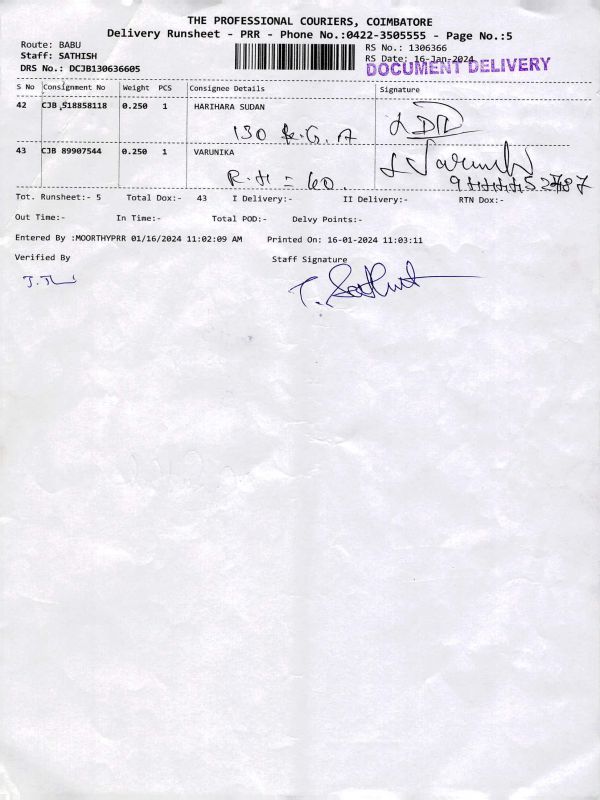 THE PROFESSIONAL COURIERS, COIMBATORE
Delivery Runsheet - PRR - Phone No.:0422-3505555 - Page No.:5
Route: BABU
Staff: SATHISH
DRS No.: DCJB130636605
RS No.: 1306366
RS Date: 16-Jan-2024
DOCUMENT DELIVERY
S No Consignment No Weight PCS Consignee Details Signature
42 CJB 518858118 0.250 1 HARIHARA SUDAN
130
43 CJB 89907544 0.250 1 VARUNIKA
Varunika
R.H = 60.
Tot. Runsheet:- 5 Total Dox:- 43 I Delivery:- II Delivery:- RTN Dox:-
Out Time:- In Time:- Total POD:- Delvy Points:-
Entered By :MOORTHYPRR 01/16/2024 11:02:09 AM Printed On: 16-01-2024 11:03:11
Verified By Staff Signature